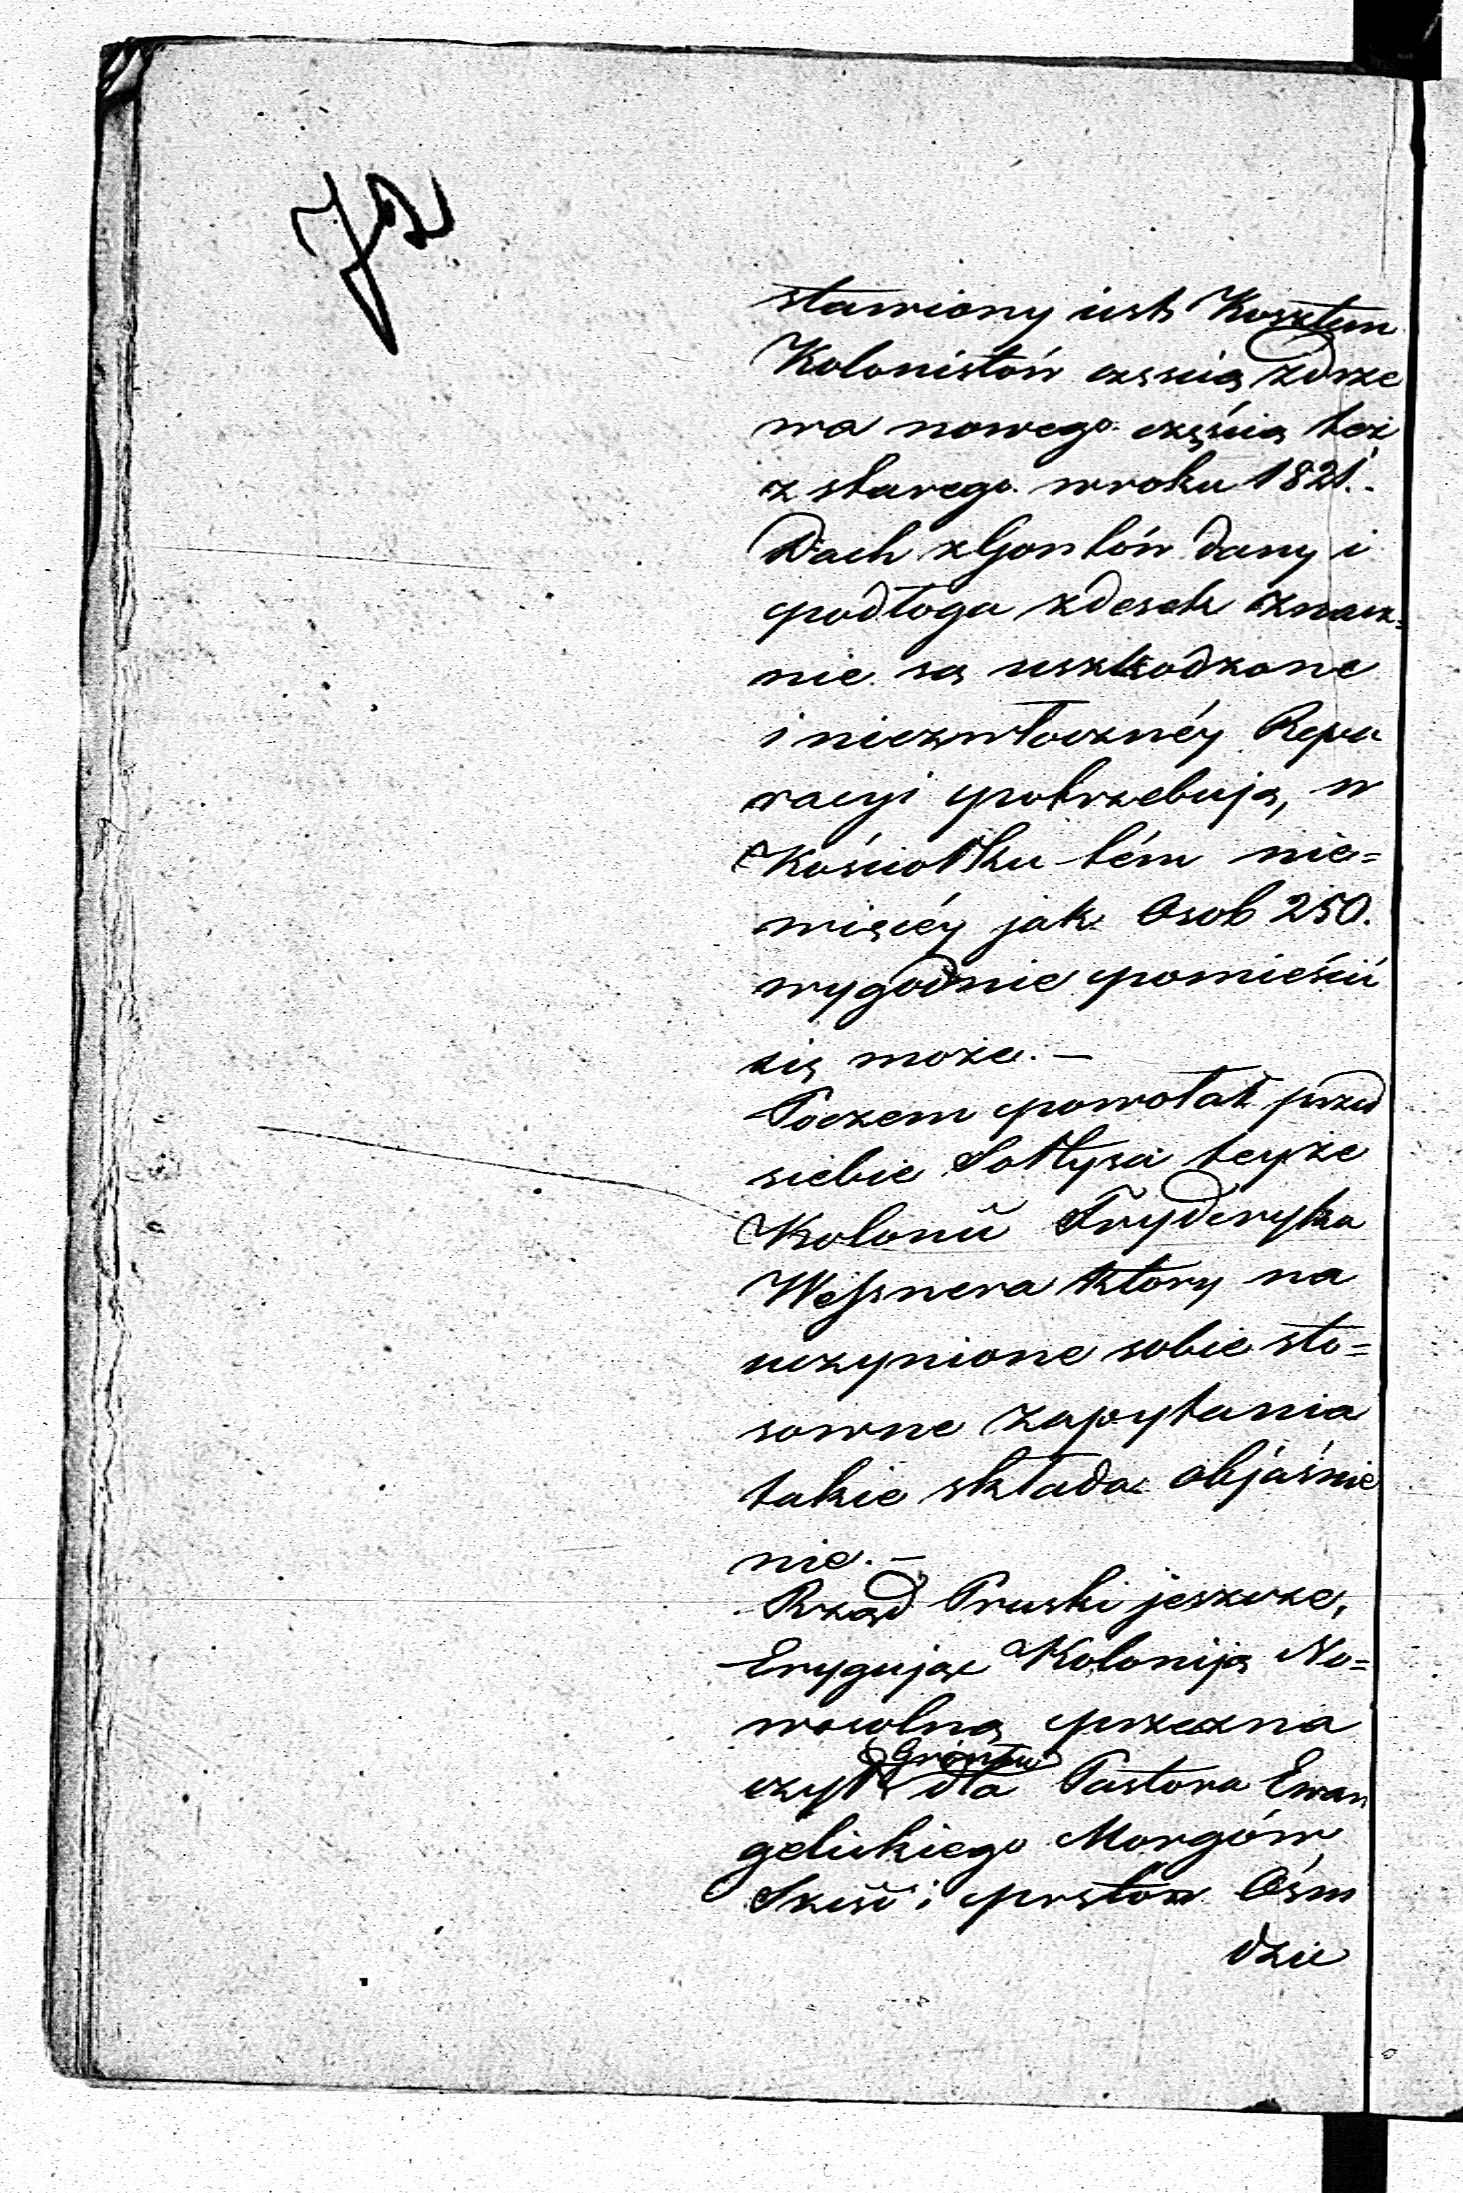 72
stawiony iest Kosztem
Kolonistów częscią zdrze
wa nowego częścią też
z starego w roku 1821.
Dach z Gontów dany i
podłoga z desek znacz=
nie są uszkodzone
i niezwłocznéy Repa
racyi potrzebują, w
Kościołku tém nie=
więcéy jak Osob 250.
wygodnie pomieścić
się może. —
Poczem powołał przed
siebie Sołtysa teyże
Kolonii Fryderyka
Wessnera ktory na
uczynione sobie sto=
sowne zapytania
takie składa objaśnie
nie. —
Rząd Pruski jeszcze,
Erygując Koloniją No=
wosolną przezna
czył Gróntu dla Pastora Ewan
gelickiego Morgów
Sześć i prętow Ośm
dzie